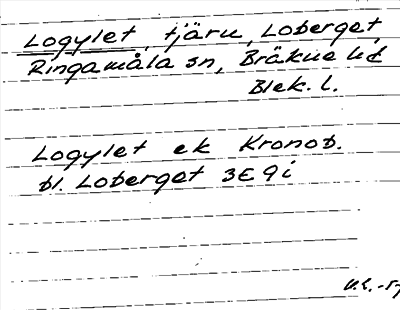 Logylet, tjärn, Loberget,
Ringamåla sn, Bräkne hd
Blek. l.
Logylet ek Kronob.
bl. Loberget 3E 9i